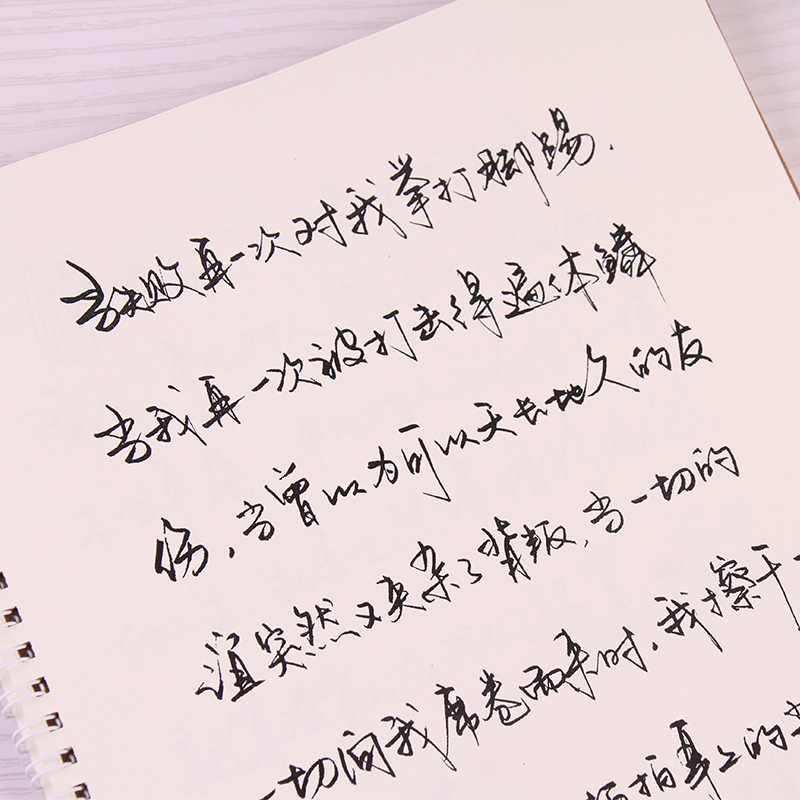 当失败再一次对我拳打脚踢.
当我再一次被打击得遍体鳞
伤,当曾以为可以天长地久的友
谊突然又夹杂了背叛,当一切的
一切向我席卷而来时.我擦干
拍拍身上的